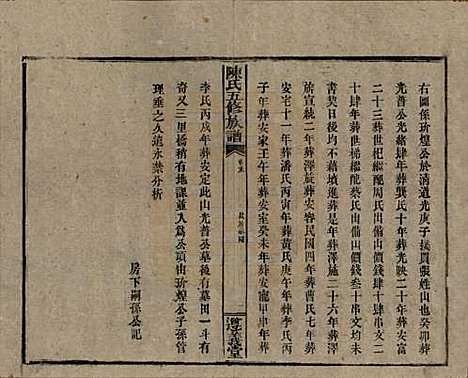 右圖係玠煌公於清道光庚子接買張姓山也癸卯葬
光普公光緒肆年葬龔氏十年葬光映二十年葬安富
二十三葬世杞繼配周氏出備山價錢肆十串文二十
十肆年葬世梯繼配蔡氏出備山價錢叁十串文均未
書契日後均不藉墳進葬是年葬澤施二十六年葬
旂宣統二年葬澤旋葬安容民國四年葬曹氏七年葬
安宅十一年葬潘氏丙寅年葬黃氏庚午年葬李氏丙
子年葬安家壬午年葬安室癸未年葬安寵甲申年葬
陳氏五修族譜
卷五
義門堂
李氏丙戌年葬安定此山光普公墓後有墓田一斗有
奇又三里橋稍有地課並入為公項由玠煌公子孫管
理垂之久遠永禁分析
房下嗣孫公記